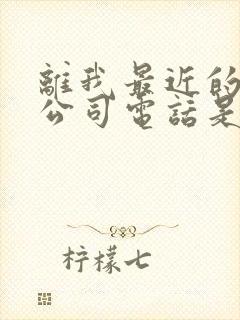 離我最近的
公司電話是
柠檬七